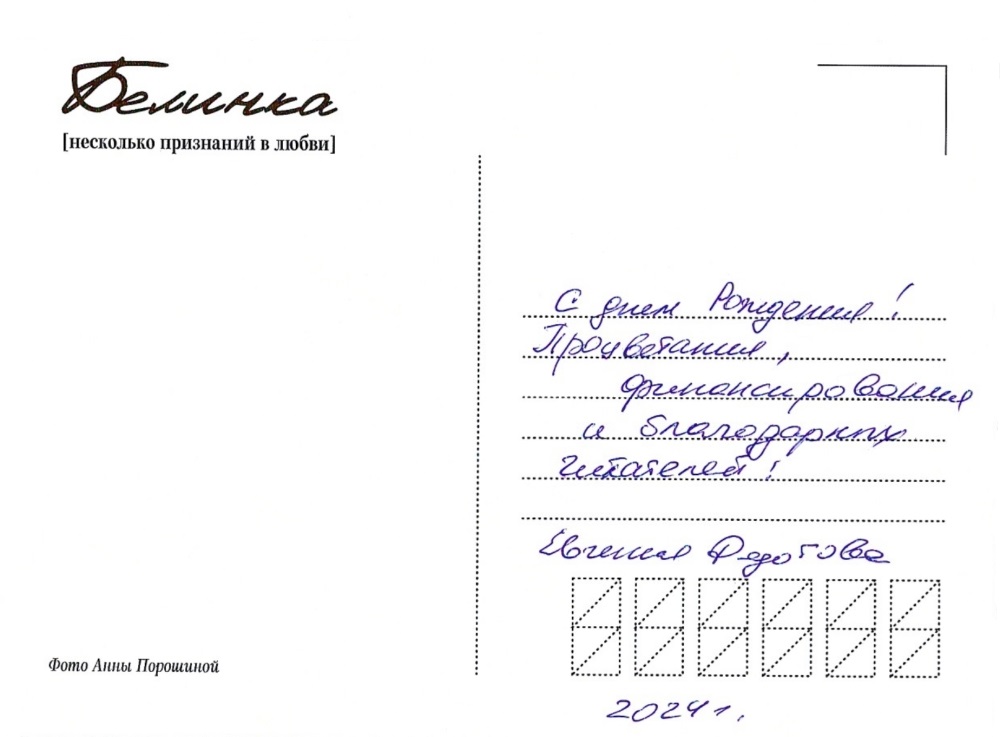 Белинка
[несколько признаний в любви]
С днем Рождения!
Процветания,
финансирования
и благодарных
читателей!
Евгения Федотова
Фото Анны Порошиной
2024 г.